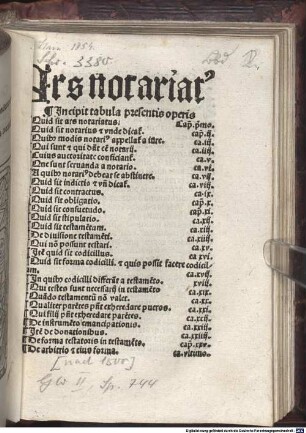 Ars notariat⁹
¶ Incipit tabula presentis operis
Quid sit ars notariatus. Cap. pmo.
Quid sit notarius ⁊ vnde dicat᷑. cap. ij.
Quibꝰ modis notari⁹ appellat᷑ a iure. ca. iij.
Qui sunt ⁊ qui dn̄t eē notarij. ca. iiij.
Cuius auctoritate conficiant᷑. ca. v.
Que sunt seruanda a notario. ca. vi.
A quibꝰ notari⁹ debeat se abstinere. ca. vij.
Quid sit indictio ⁊ vn̄ dicat᷑. ca. viij.
Quid sit contractus. ca. ix.
Quid sit obligatio. cap. x.
Quid sit consuetudo. cap. xi.
Quid sit stipulatio. ca. xij.
Quid sit testamētum. ca. xiij.
De diuisione testamēti. ca. xiiij.
Qui nō possunt testari. ca. xv.
Itē quid sit codicillus. ca. xvi.
Quid sit forma codicilli. ⁊ quis possit facere codicillum. ca. xvij.
In quibꝰ codicilli differūt a testamēto. xviij.
Qui testes sunt necessarij in testamēto. ca. xix.
Quādo testamentū nō valet. ca. xx.
Qualiter parētes pn̄t exheredare pueros. ca. xxi.
Qui filij pn̄t exheredare parētes. ca. xxij.
De instrumēto emancipationis. ca. xxiij.
Itē de donationibus. ca. xxiiij.
De forma testatoris in testamēto. ca. xxv.
De arbitrio ⁊ eius forma. ca. vltimo.
[nach 1500]
GW II, Sp. 744